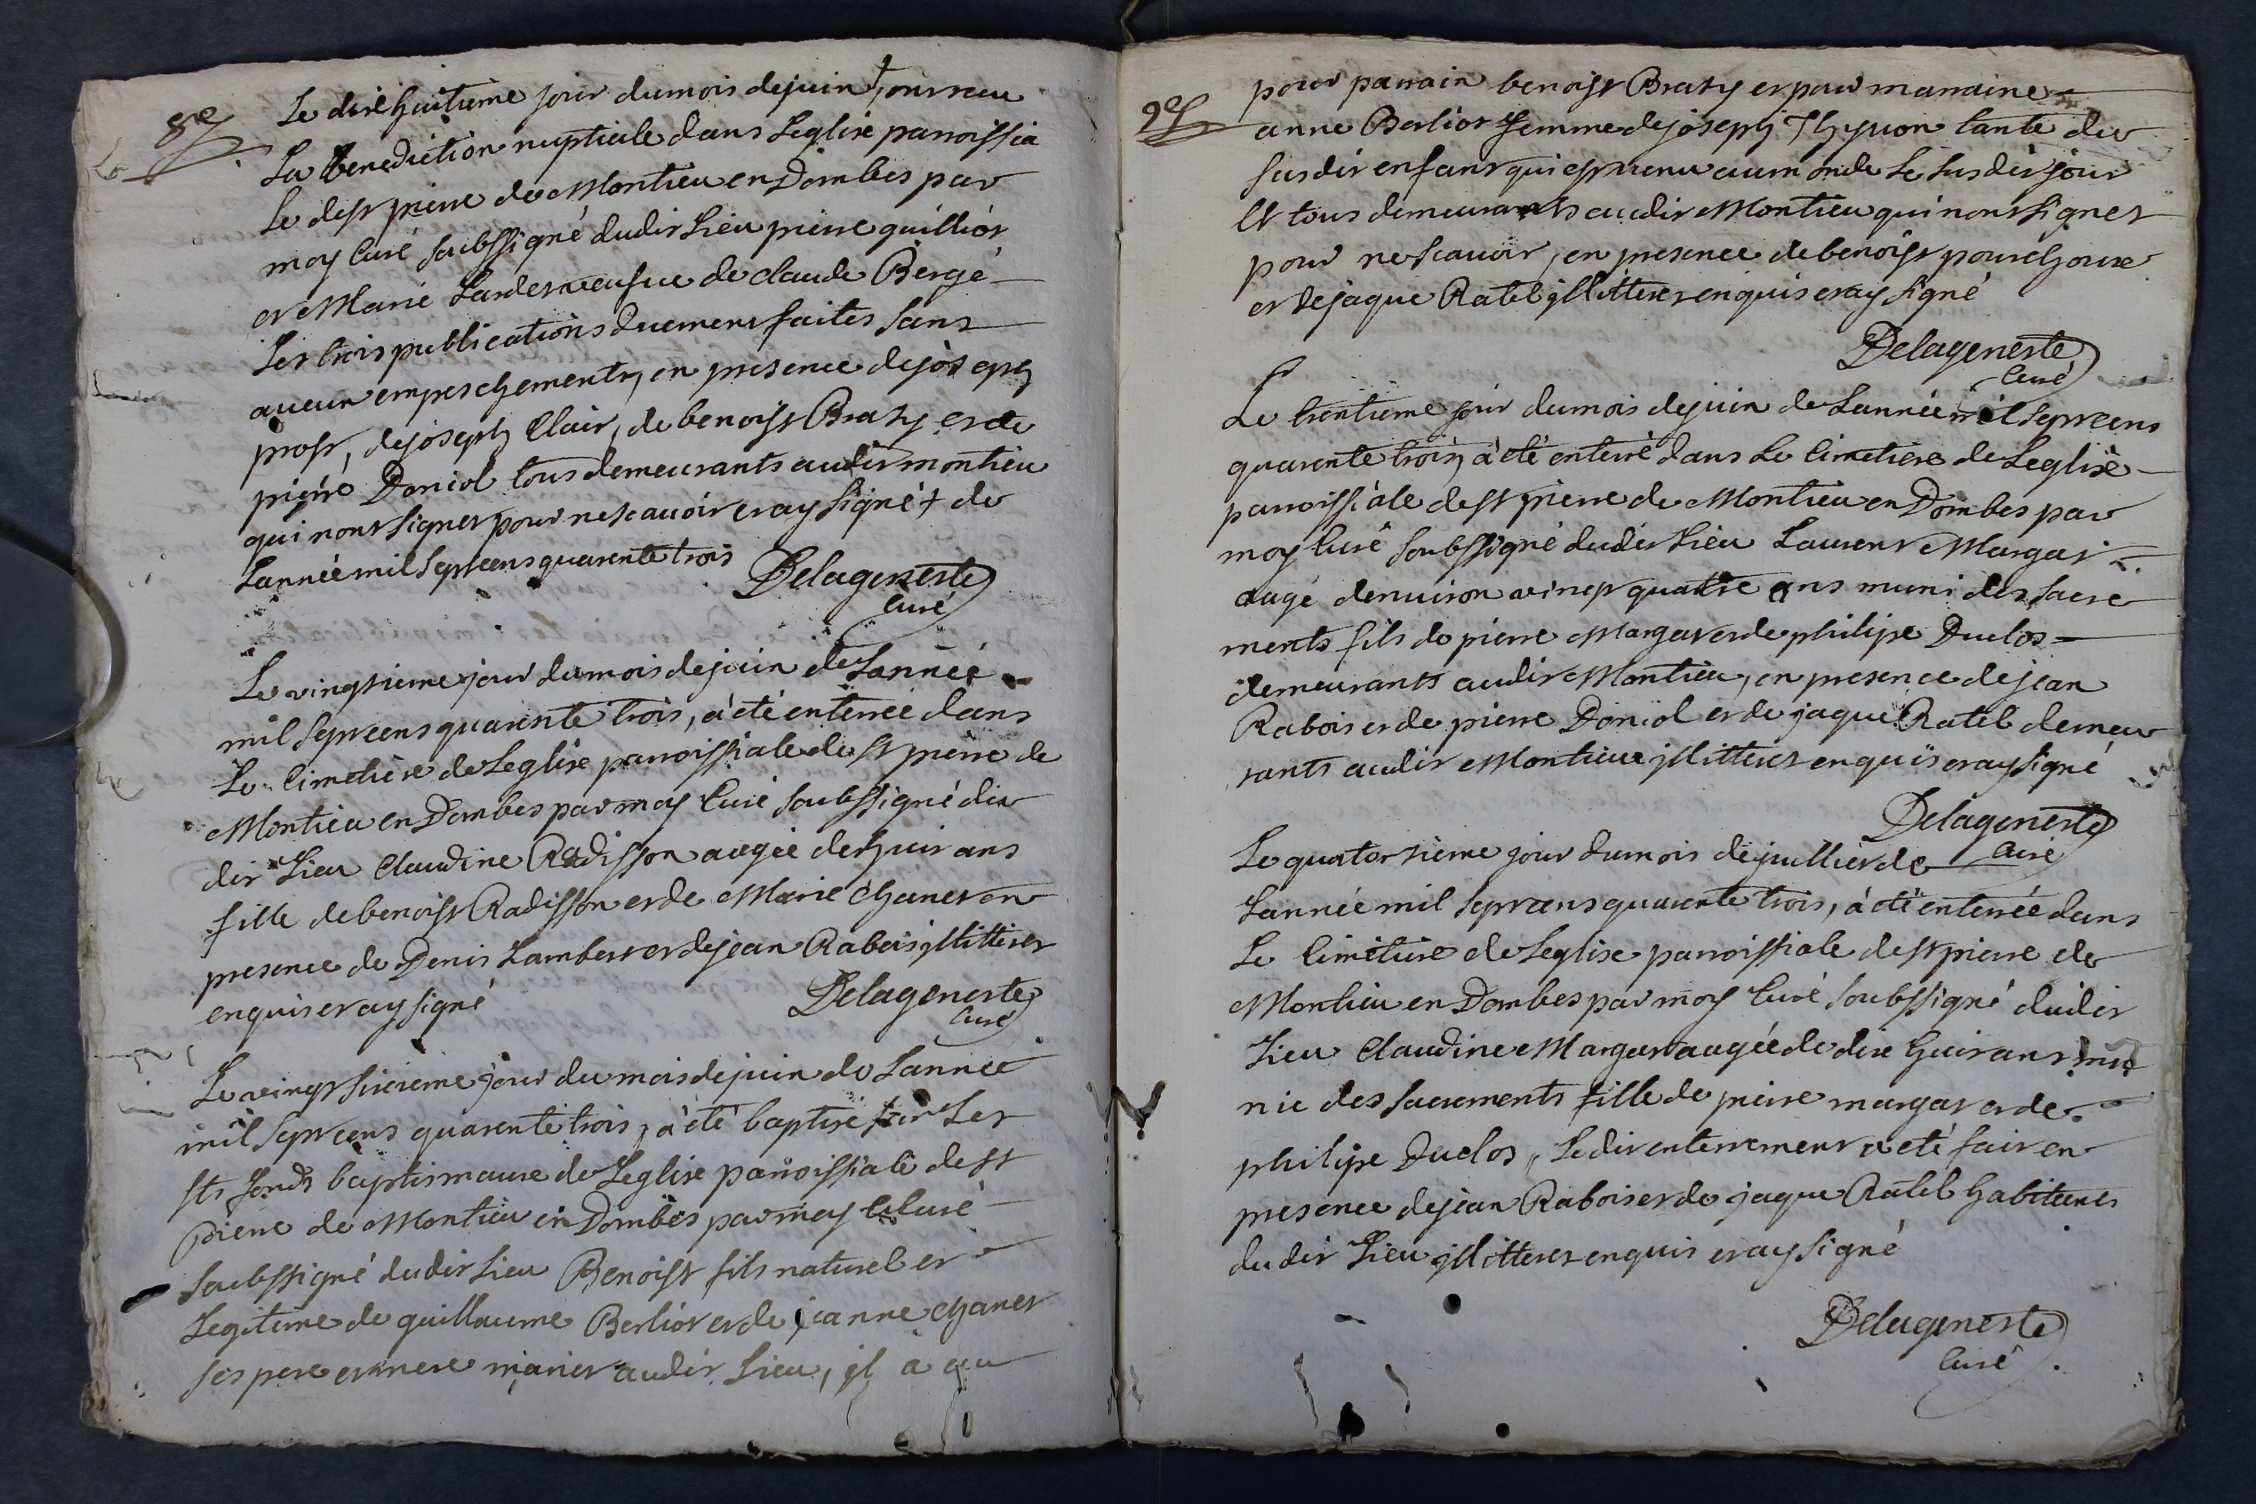 8e
Le dixhuitieme jour du mois de juin + ont receu
La benediction nuptiale dans Leglise parroissia
Le de st pierre de Montieu en Dombes par
moy Curé soubssigné dudit Lieu pierre guilliot
et Marie Lardet veufve de claude Bergé
Les trois publications duement faites sans
aucun empeschement, en presence de joseph
prost, de joseph Clair, de benoist Braty et de
pierre Doniol tous demeurants audit montieu
qui nont signer pour ne scavoir et ay signé + de
Lannée mil sept cens quarente trois
Delageneste
Curé
Le vingtieme jour du mois de juin de Lannée
mil sept cens quarente trois, à été enterrée dans
Le Cimetiere de Leglise parroissiale de st pierre de
Montieu en Dombes par moy Curé soubssigné du
dit Lieu Claudine Radisson augée de huit ans
fille de benoist Radisson et de Marie Chanet en
presence de Denis Lambert et de jean Rabois jllitterer
enquis et ay signé
Delageneste
Curé
Le vingt sixieme jour du mois de juin de Lannée
mil sept cens quarente trois, à été baptisé sur Les
sts fonds baptismaux de Leglise parroissiale de st
pierre de Montieu en Dombes par moy Curé
soubssigné dudit Lieu Benoist fils naturel et
Legitime de guillaume Berliot et de jeanne chanet
ses pere et mere mariet audit Lieu, jl a eu
9e
pour parrain benoist Braty et pour marraine
anne Berliot femme de joseph Thyvon tante du
susdit enfant qui est venu au monde Le susdit jour
Et tous demeurants audit Montieu qui nont signer
pour ne scavoir, en presence de benoist pourchoux
et de jaque Ratel jllitterer enquis et ay signé
Delageneste
Curé
Le trentieme jour du mois de juin de Lannée mil sept cens
quarente trois, à été enterré dans Le Cimetiere de Leglise
parroissiale de st pierre de Montieu en Dombes par
moy Curé soubssigné dudit Lieu Laurent Margat
augé denviron vingt quatre ans muni des sacre
ments fils de pierre Margat et de philipe Duclos
demeurants audit Montieu, en presence de jean
Rabois et de pierre Doniol et de jaque Ratel demeu
rants audit Montieu jllitterer enquis et ay signé
Delageneste
Curé
Le quatorsieme jour du mois de julliet de
Lannée mil sept cens quarente trois, à été enterrée dans
Le Cimetiere de Leglise parroissiale de st pierre de
Montieu en Dombes par moy Curé soubssigné dudit
Lieu Claudine Margat augée de dix huit ans mu
nie des sacrements fille de pierre margat et de
philipe Duclos, Ledit enterrement a eté fait en
presence de jean Rabois et de jaque Ratel habitans
dudit Lieu jllitterer enquis et ay signé
Delageneste
Curé